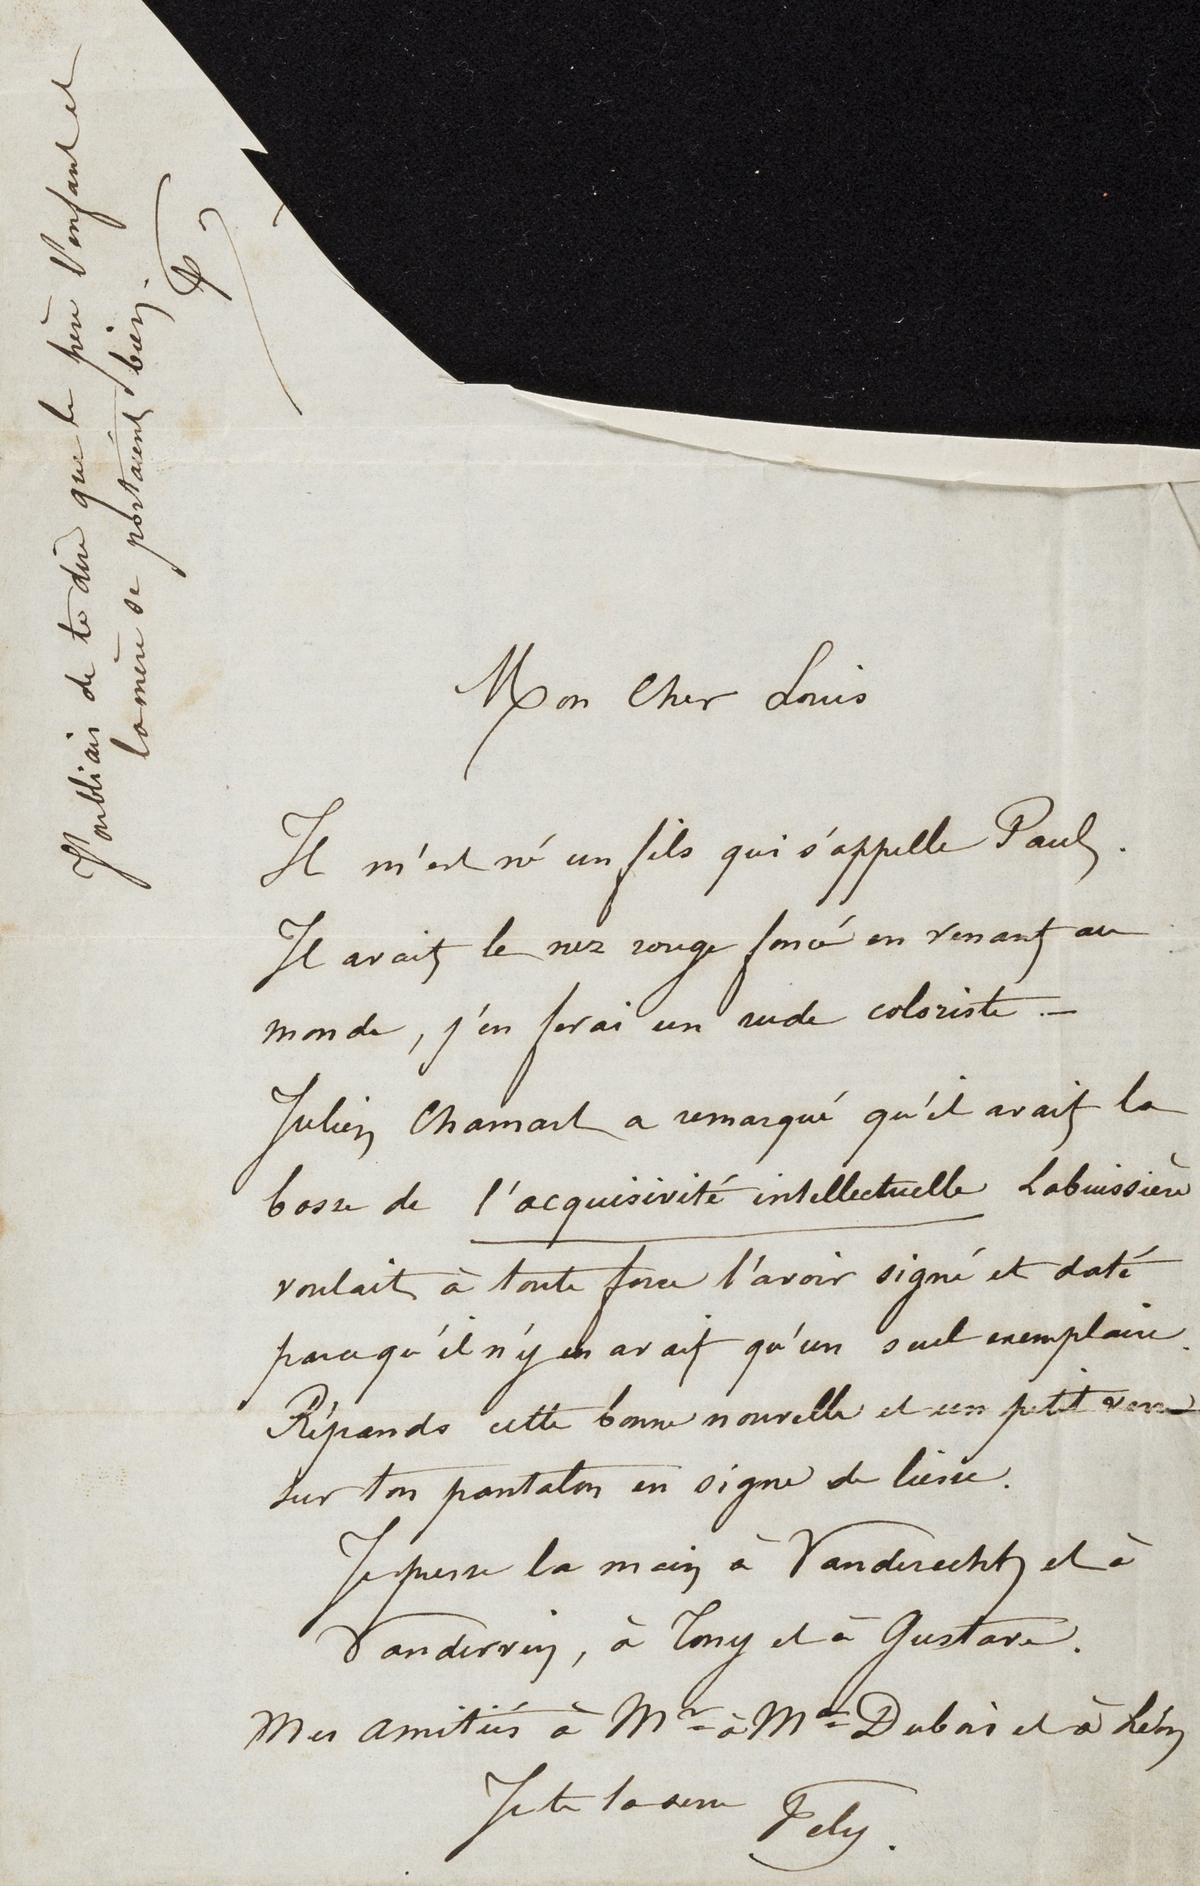 Mon Cher Louis
Il m'est né un fils qui s'appelle Paul.
Il avait le nez rouge foncé en venant au
monde, j'en ferai un rude coloriste. —
Julien Chamart a remarqué qu'il avait la
bosse de l'acquisivité intellectuelle Labuissière
voulait à toute force l'avoir signé et daté
parcequ'il n'y en avait qu'un seul exemplaire.
Répands cette bonne nouvelle et un petit verre
sur ton pantalon en signe de liesse.
Je presse la main à Vanderecht et à
à Tony et à Gustave.
Mes amitiés à Mr à Me Dubois et à Léon
Je te la serre Fely.
J'oubliais de te dire que le père l'enfant et
la mère se portaient bien.
F